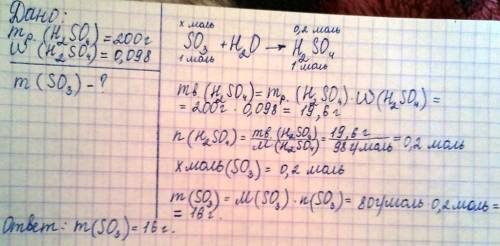 Дано:
mр. (H₂SO₄) = 200г
W (H₂SO₄) = 0,098
m (SO₃) - ?
x моль 0,2 моль
SO₃ + H₂O → H₂SO₄
1 моль 1 моль
mв. (H₂SO₄) = mр. (H₂SO₄) · W (H₂SO₄) =
= 200г · 0,098 = 19,6 г
n (H₂SO₄) = mв. (H₂SO₄) / M (H₂SO₄) = 19,6 г / 98 г/моль = 0,2 моль
x моль (SO₃) = 0,2 моль
m (SO₃) = M (SO₃) · n (SO₃) = 80 г/моль · 0,2 моль =
= 16 г.
Ответ: m (SO₃) = 16 г.